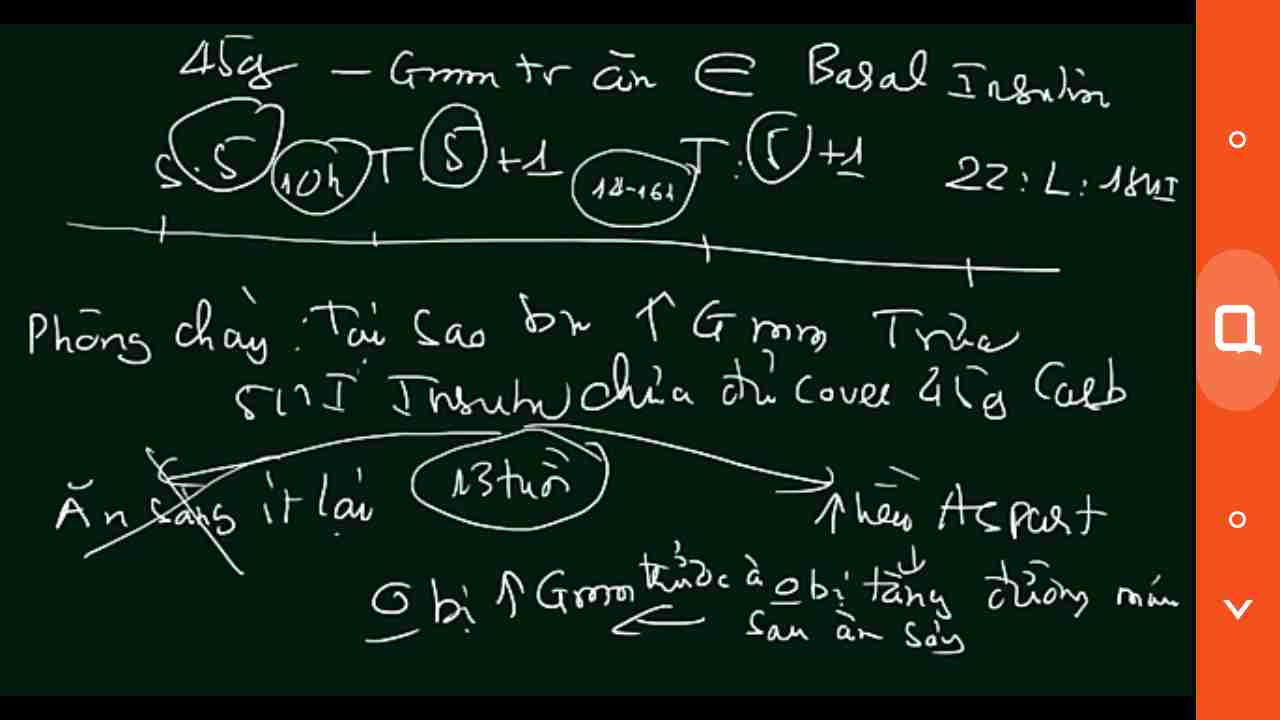 45g - Gmm tr ăn ∈ Basal Insulin
S: 5 10h T 5 +1 14-16h T: 5 +1 22: L: 18UI
Phòng chày: Tại sao bn ↑ Gmm Trưa
5UI Insulin chưa đủ cover 45g Carb
Ăn sáng ít lại 13 tuổi ↑ liều Aspart
O bị ↑ Gmm trước ă O bị tăng đường máu
sau ăn sáng